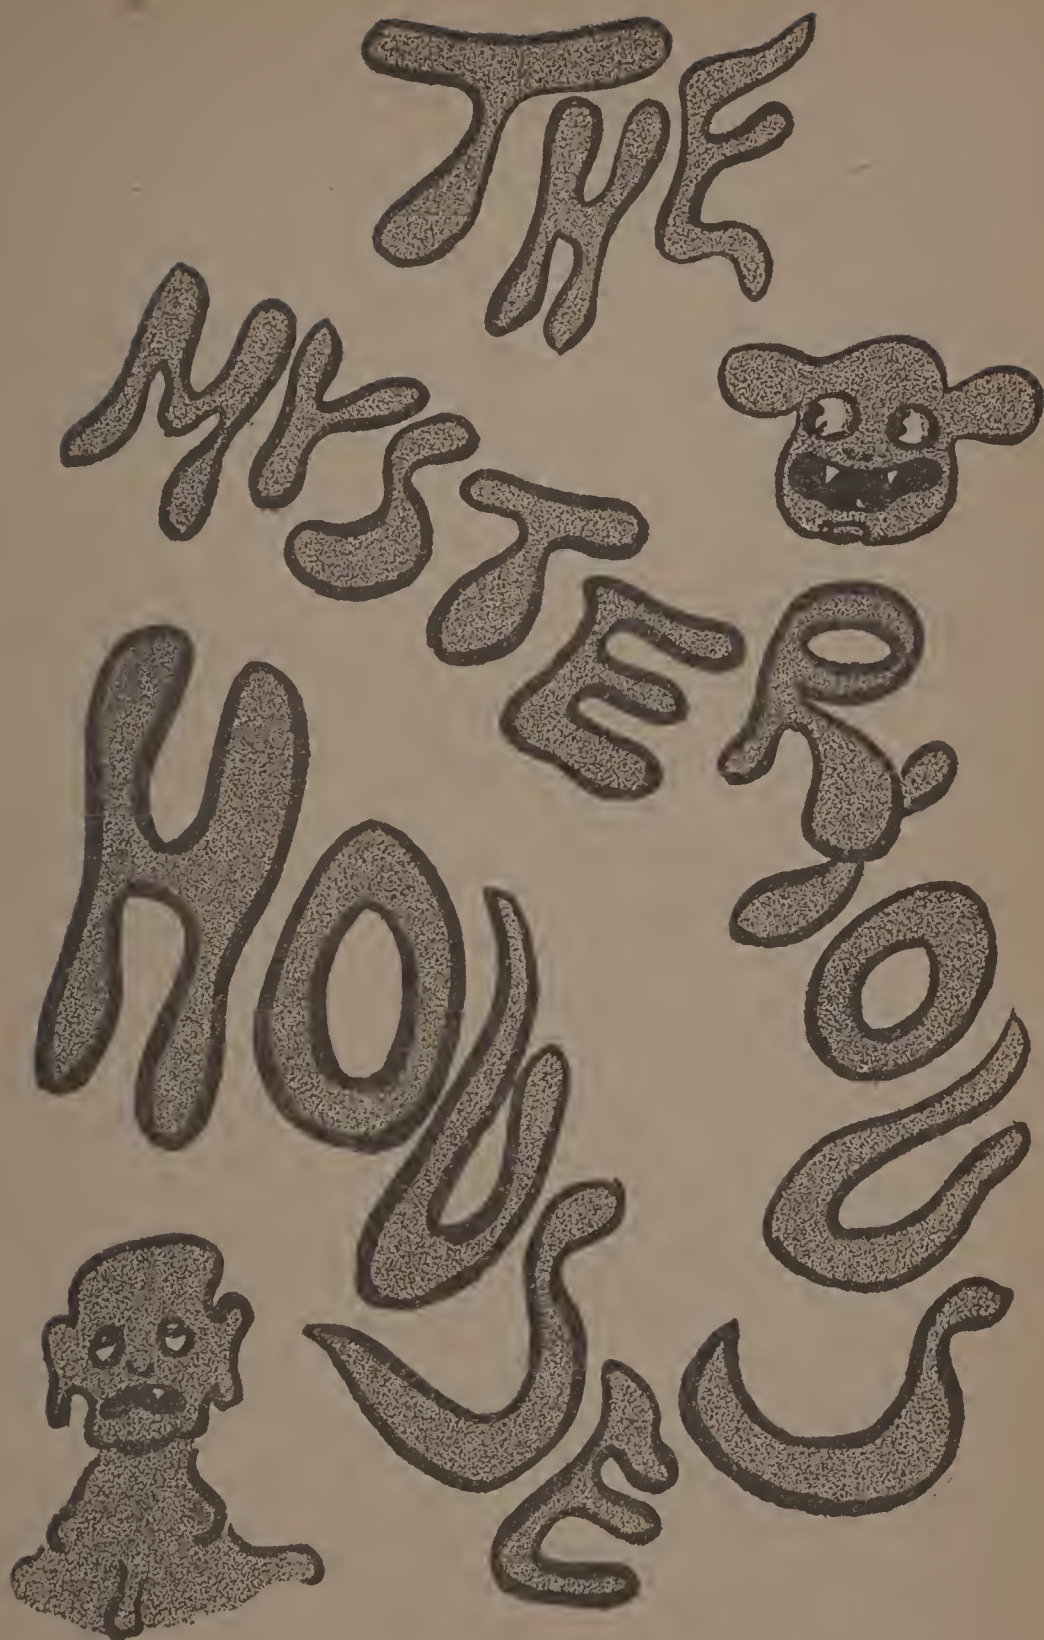 THE
MYSTEROUS
HOUSE